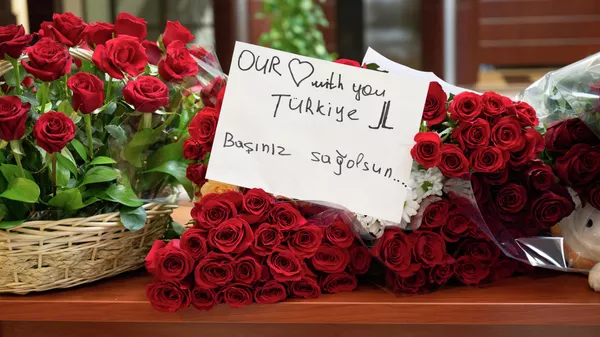 OUR ♡ with you
TÜRKiye
Başınız sağolsun...